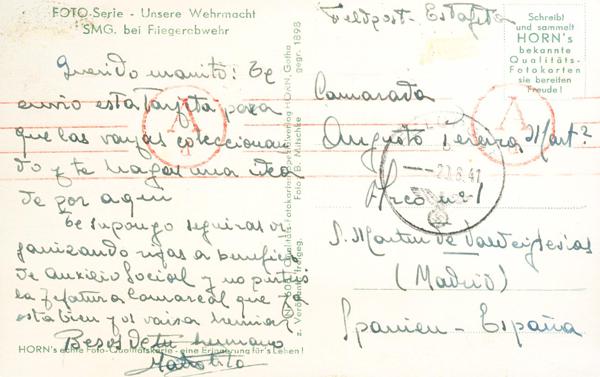 FOTO-Serie - Unsere Wehrmacht
SMG. bei Fliegerabwehr
Querido manito: Te
envio esta tarjeta para
que las vayas coleccionan
do y te hagas una idea
de por aqui
Te supongo seguiras or
ganizando rifas a beneficio
de Auxilio Social y no
la Jefatura Comarcal que
esta bien y os vais a
Besos de tu hermano
HORN's echte Foto-Qualitätskarte - eine Erinnerung für's Leben!
HORN, Gotha
gegr. 1898
Foto: B. Mitschke
Feldpost - Estafeta
Schreibt
und sammelt
HORN's
bekannte
Qualitäts-
Fotokarten
sie bereiten
Freude!
Camarada
Augusto Pereira Mart?
Arco nº 1
S. Martin de Valdeiglesias
(Madrid)
Spanien - España
A
A